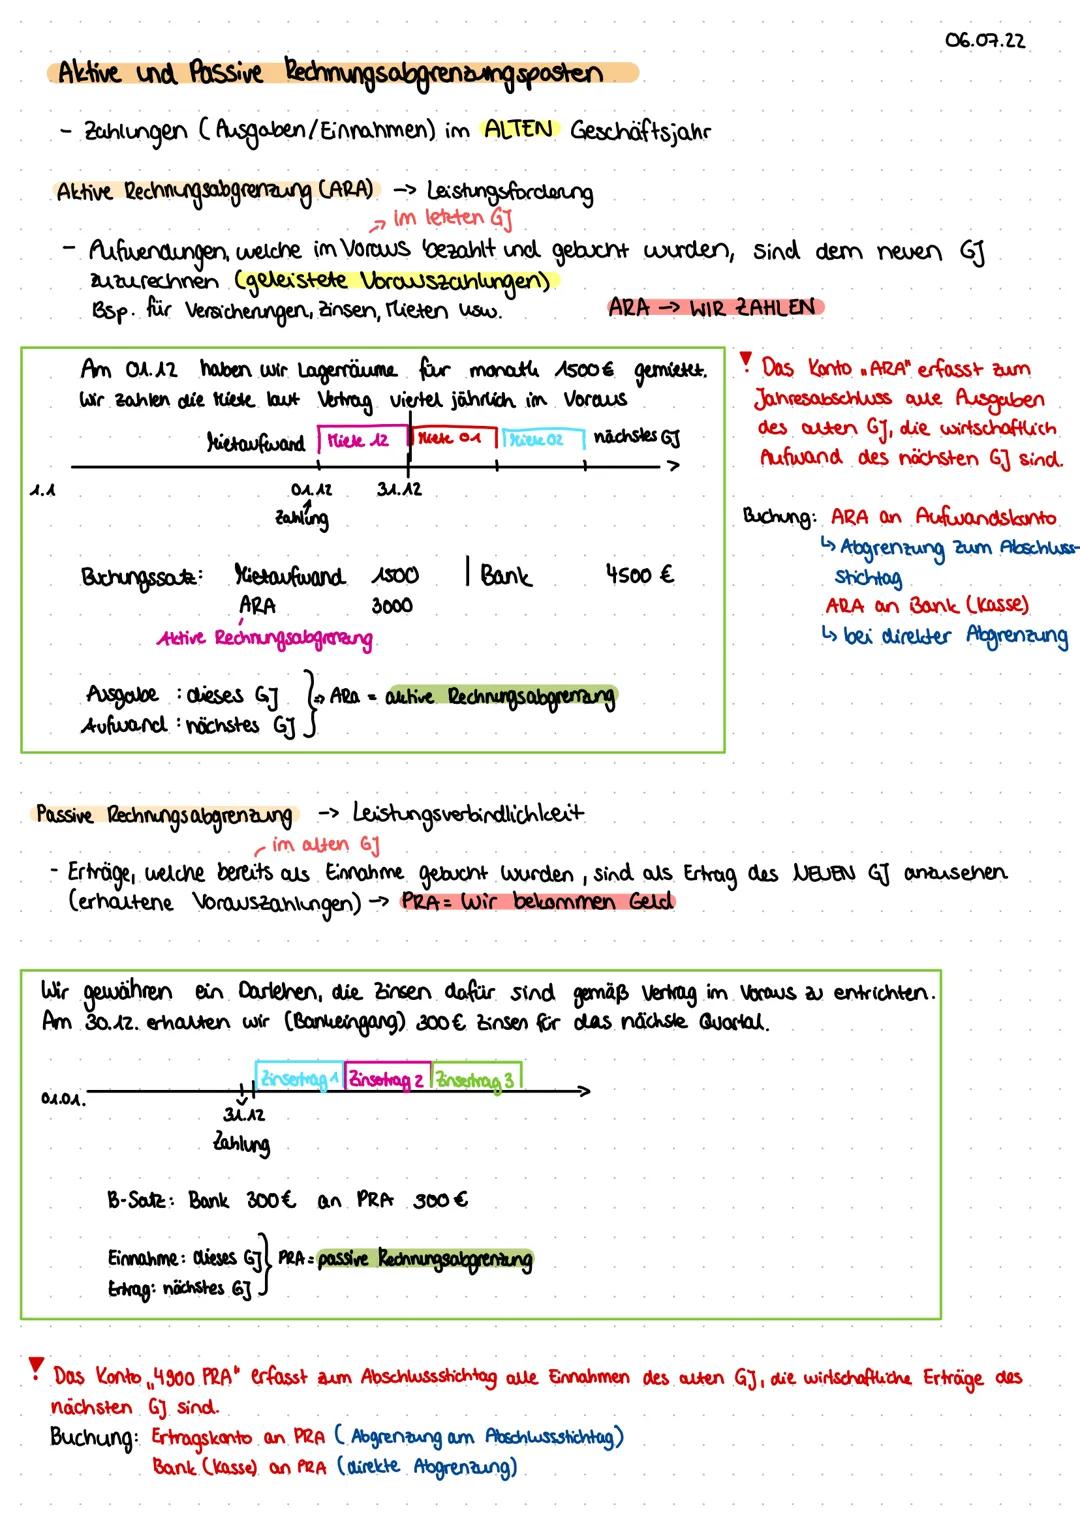 06.07.22
Aktive und Passive Rechnungsabgrenzungsposten
- Zahlungen (Ausgaben/Einnahmen) im ALTEN Geschäftsjahr
Aktive Rechnungsabgrenzung (ARA) -> Leistungsforderung
im letzten GJ
- Aufwendungen, welche im Voraus bezahlt und gebucht wurden, sind dem neuen GJ
zuzurechnen (geleistete Vorauszahlungen)
Bsp. für Versicherungen, Zinsen, Mieten usw. ARA -> WIR ZAHLEN
Am 01.12 haben wir Lagerräume für monatl. 1500€ gemietet.
Wir zahlen die Miete laut Vertrag viertel jährlich im Voraus
Mietaufwand Miete 12 Miete 01 Miete 02 nächstes GJ
1.1 01.12 31.12
Zahlung
Buchungssatz: Mietaufwand 1500 | Bank 4500 €
ARA 3000
Aktive Rechnungsabgrenzung
Ausgabe : dieses GJ
Aufwand : nächstes GJ
=> ARA = aktive Rechnungsabgrenzung
! Das Konto „ARA" erfasst zum
Jahresabschluss alle Ausgaben
des alten GJ, die wirtschaftlich
Aufwand des nächsten GJ sind.
Buchung: ARA an Aufwandskonto
↳ Abgrenzung zum Abschluss-
stichtag
ARA an Bank (Kasse)
↳ bei direkter Abgrenzung
Passive Rechnungsabgrenzung -> Leistungsverbindlichkeit
im alten GJ
- Erträge, welche bereits als Einnahme gebucht wurden, sind als Ertrag des NEUEN GJ anzusehen
(erhaltene Vorauszahlungen) -> PRA = Wir bekommen Geld
Wir gewähren ein Darlehen, die Zinsen dafür sind gemäß Vertrag im Voraus zu entrichten.
Am 30.12. erhalten wir (Bankeingang) 300€ Zinsen für das nächste Quartal.
Zinsertrag 1 Zinsertrag 2 Zinsertrag 3
01.01. 31.12
Zahlung
B-Satz: Bank 300€ an PRA 300€
Einnahme: dieses GJ
Ertrag: nächstes GJ
PRA = passive Rechnungsabgrenzung
! Das Konto „4900 PRA" erfasst zum Abschlussstichtag alle Einnahmen des alten GJ, die wirtschaftliche Erträge des
nächsten GJ sind.
Buchung: Ertragskonto an PRA (Abgrenzung am Abschlussstichtag)
Bank (Kasse) an PRA (direkte Abgrenzung)